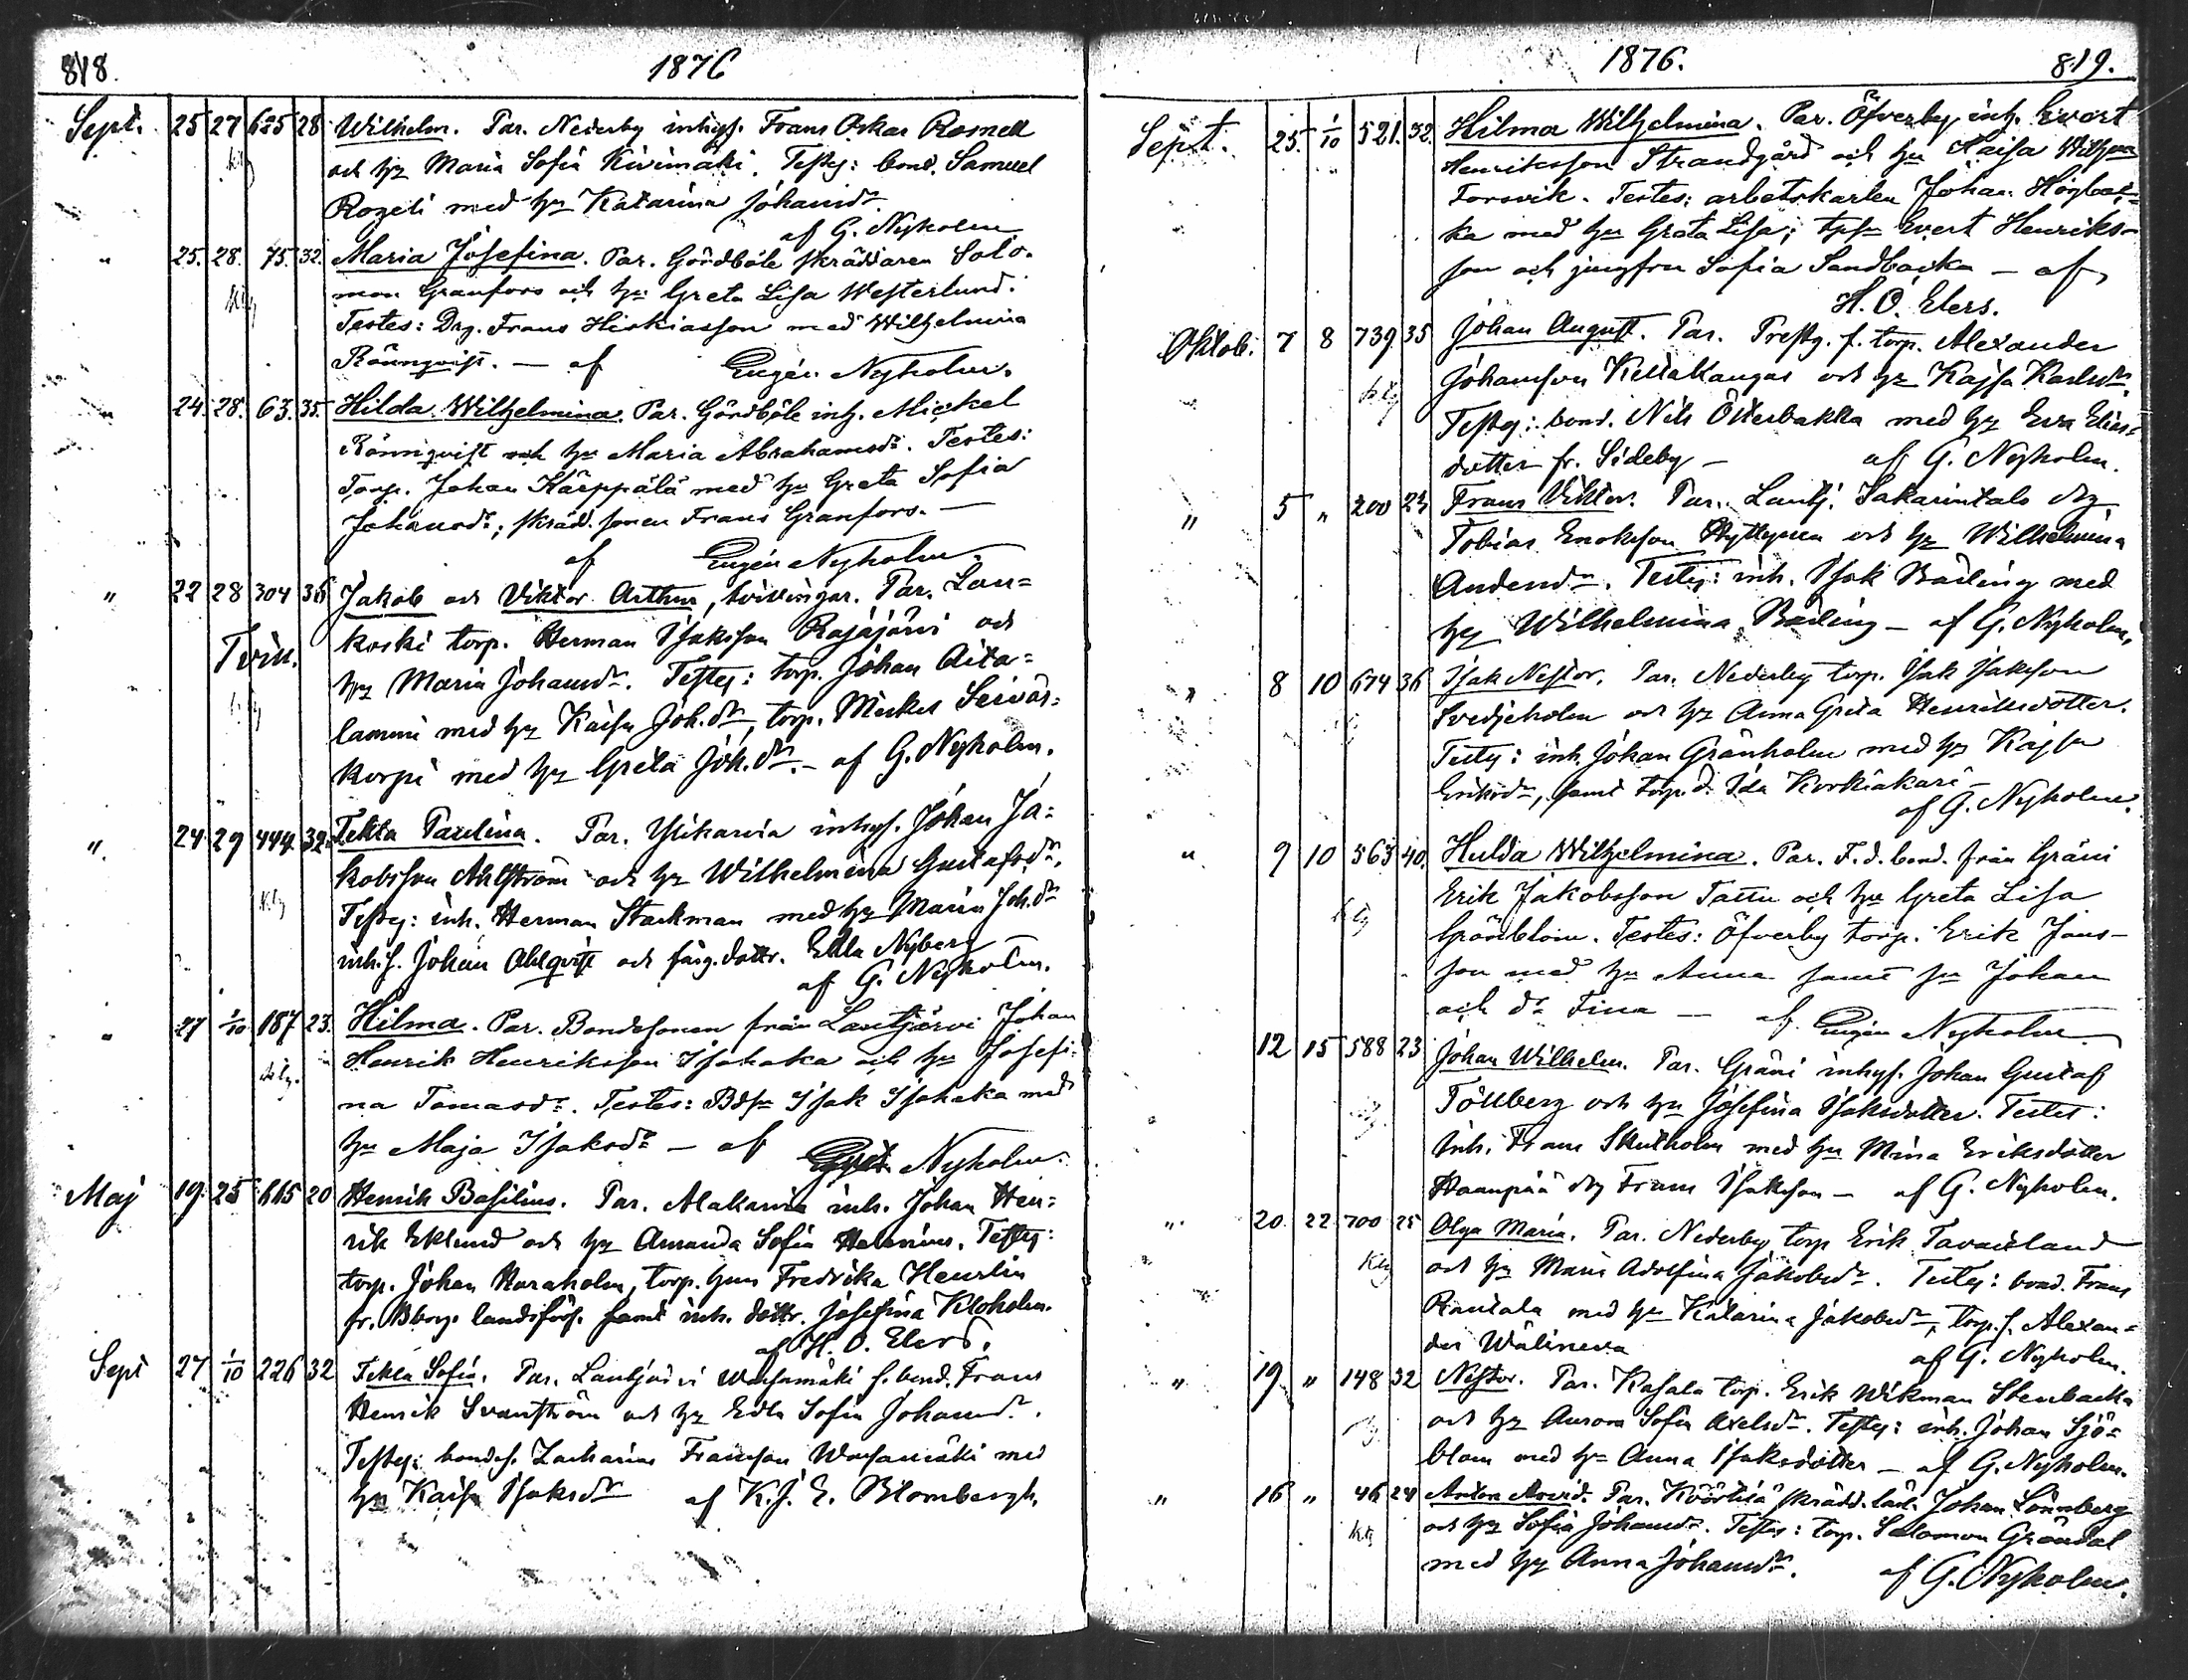 818.
1876
Sept. 25 27 685 28 Wilhelm. Par. Nederby inhys. Frans Oskar Rosnell
och hu Maria Sofia Kivimäki. Testes: bond. Samuel
med hu Katarina Johansdr
af G. Nyholm
" 25. 28. 75. 32. Maria Josefina. Par. Gördböle skräddaren Salo-
mon Granfors och hu Greta Lisa Westerlund.
Testes: Drg. Frans Hiskiasson med Wilhelmina
Rönnqvist. — af Eugén Nyholm.
" 24. 28. 63. 35. Hilda Wilhelmina. Par. Gördböle inh. Mickel
Rönnqvist och hu Maria Abrahamsdr. Testes:
Torp. Johan Kärppälä med hu Greta Sofia
Johansdr; skrädd. sonen Frans Granfors. —
af Eugén Nyholm.
" 22 28 304 36 Jakob och Viktor Arthur, tvillingar. Par. Lau=
Tvill. koski torp. Herman Isaksson Rajajärvi och
hu Maria Johansdr. Testes: torp. Johan Aita=
lammi med hu Kaisa Joh.dr, torp. Mickel
korpi med hu Greta Joh.dr. — af G. Nyholm.
". 24. 29 444 32 Tekla Paulina. Par. Ylikarvia inhys. Johan Ja=
kobsson Ahlström och hu Wilhelmina Gustafsdr.
Testes: inh. Herman Stackman med hu Maria Joh.dr
inh.s. Johan Ahlqvist och dottr. Edla Nyberg —
af G. Nyholm.
" 27 1/10 187 23. Hilma. Par. Bondesonen från Lautjärvi Johan
Henrik Henriksson Isohaka och hu Josefi-
na Tomasdr. Testes: Bdsn Isak Isohaka med
hu Maja Isaksdr — af Nyholm.
Maj 19 25 665 20 Henrik Basilius. Par. Alakarvia inh. Johan Hen=
rik Eklund och hu Amanda Sofia Testes:
torp. Johan Haraholm, torp. Fredrika Heurlin
fr. landsförs. samt inh. dottr. Josefina Kloholm.
af H. O. Elers.
Sept 27 1/10 226 32 Tekla Sofia. Par. Lautjärvi s. bond. Frans
Henrik Svanström och hu Edla Sofia Johansdr.
Testes: bondes. Zacharias Fransson med
hu Kaisa Isaksdr af K. J. E. Blombergh.
1876.
819.
Sept. 25. 1/10 521. 32. Hilma Wilhelmina. Par. Öfverby inh. Evert
Henriksson Strandgård och hu Kaisa
Forsvik. Testes: arbetskarlen Johan Högbac-
ka med hu Greta Lisa; Evert Henriks-
son och jungfru Sofia Sandbacka — af
H. O. Elers.
Oktob. 7 8 739 35 Johan August. Par. Prestg. s. torp. Alexander
Johansson Ketakangas och hu Kajsa Karlsdr.
Testes: bond. Nils Österbakka med hu Eva Elias-
dotter fr. Sideby — af G. Nyholm.
" 5 " 200 Frans Viktor. Par. Lautj. drg.
Tobias Enoksson Hyttynen och hu Wilhelmina
Testes: inh. Isak Bärling med
hu Wilhelmina Bärling — af G. Nyholm.
" 8 10 674 36 Isak Nestor. Par. Nederby torp. Isak Isaksson
Svedjeholm och hu Anna Greta Henriksdotter.
Testes: inh. Johan Grönholm med hu Kajsa
Eriksdr, samt torp.d. Ida Korkiakari —
af G. Nyholm.
" 9 10 563 40. Hulda Wilhelmina. Par. F.d. bond. från Gräni
Erik Jakobsson Tattu och hu Greta Lisa
Grönblom. Testes: Öfverby torp. Erik Jans-
son med hu Anna samt sn Johan
och dr Fina — af Eugén Nyholm
12 15 588 23 Johan Wilhelm. Par. Gräni inhys. Johan Gustaf
Töllberg och hu Josefina Isaksdotter. Testes:
Inh. Frans Skutholm med hu Mina Eriksdotter
Haanpää drg Frans Isaksson — af G. Nyholm.
" 20. 22 700 25 Olga Maria. Par. Nederby torp Erik Tavastland
och hu Maria Adolfina Jakobsdr. Testes: bond. Frans
Rantala med hu Katarina Jakobsdr, torp.s. Alexan=
der Wälineva af G. Nyholm.
" 19 " 148 32 Nestor. Par. Kasala torp. Erik Wikman Stenbacka
och hu Aurora Sofia Axelsdr. Testes: inh. Johan Sjö=
blom med hu Anna Isaksdotter — af G. Nyholm.
" 16 " 46 24 Anton Arvid. Par. skrädd. Johan Lönnberg
och hu Sofia Johansdr. Testes: torp. Salomon Gröndal
med hu Anna Johansdr. af G. Nyholm.